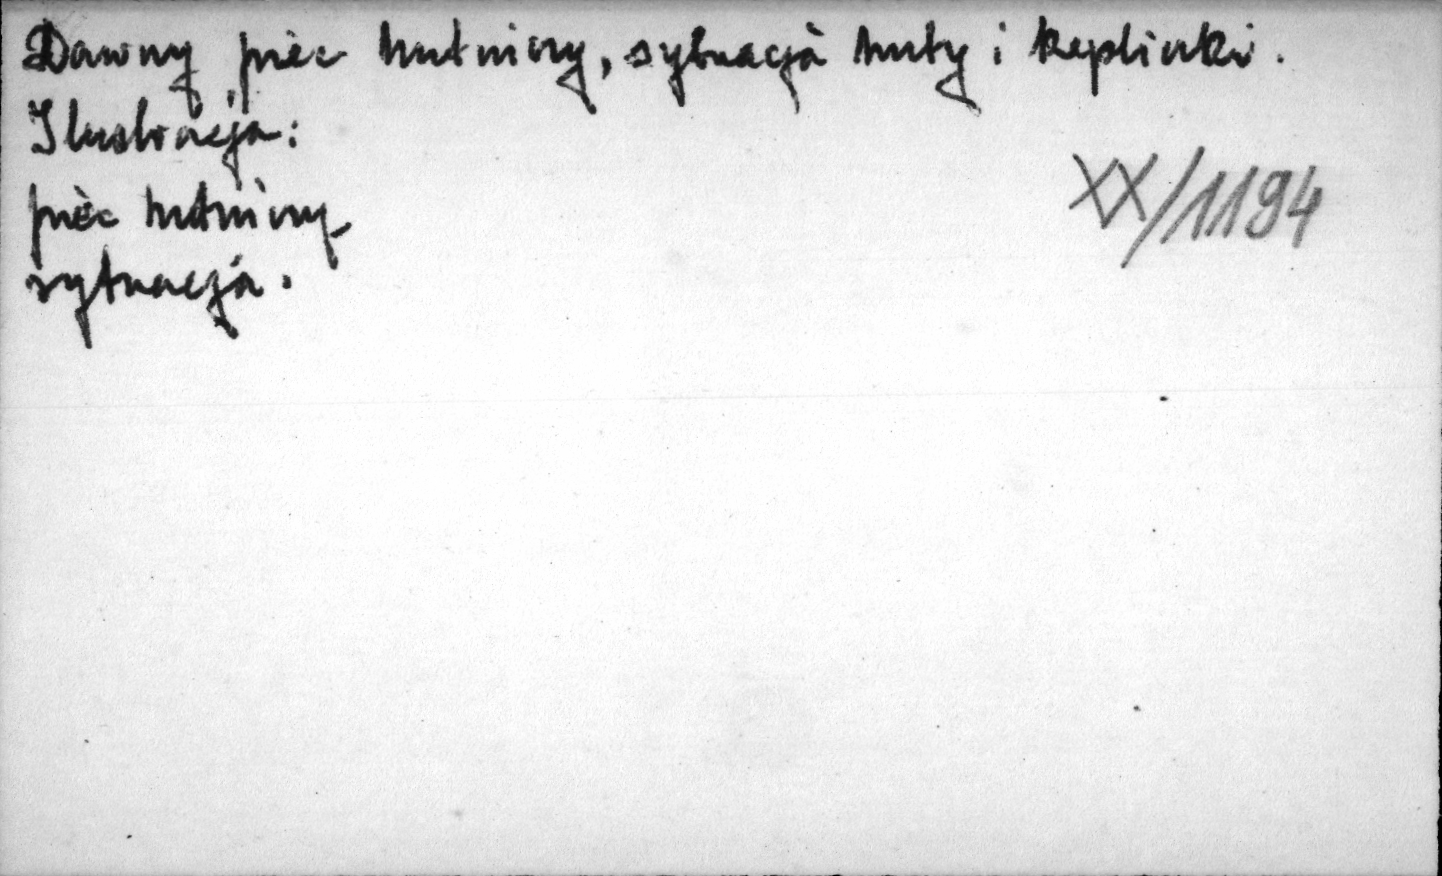 Dawny piec hutniczy, sytuacja huty i kaplinki.
Ilustracja:
XX/1194
piec hutniczy
sytuacja.